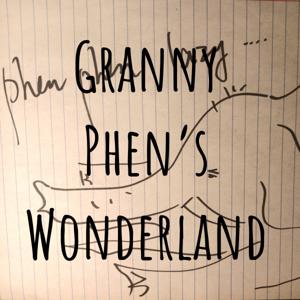 GRANNY
phen phen
PHEN'S
WONDERLAND